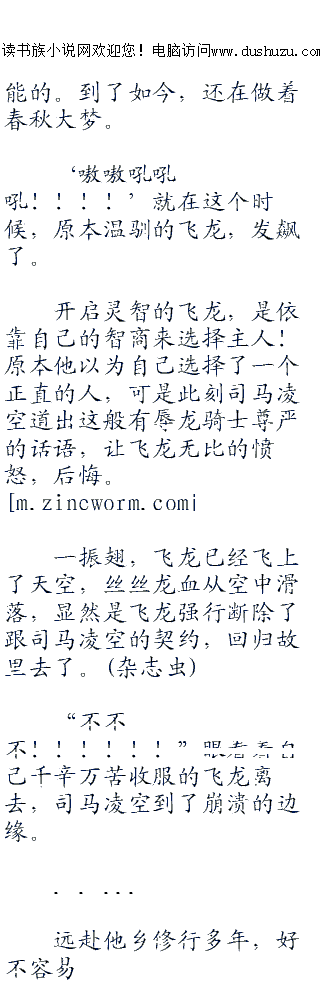 读书族小说网欢迎您！电脑访问www.dushuzu.com
能的。到了如今，还在做着
春秋大梦。
‘嗷嗷吼吼
吼！！！！’就在这个时
候，原本温驯的飞龙，发飙
了。
开启灵智的飞龙，是依
靠自己的智商来选择主人！
原本他以为自己选择了一个
正直的人，可是此刻司马凌
空道出这般有辱龙骑士尊严
的话语，让飞龙无比的愤
怒，后悔。
[m.zincworm.com]
一振翅，飞龙已经飞上
了天空，丝丝龙血从空中滑
落，显然是飞龙强行断除了
跟司马凌空的契约，回归故
里去了。(杂志虫)
“不不
不！！！！！！”眼看着自
己千辛万苦收服的飞龙离
去，司马凌空到了崩溃的边
缘。
. . ...
远赴他乡修行多年，好
不容易